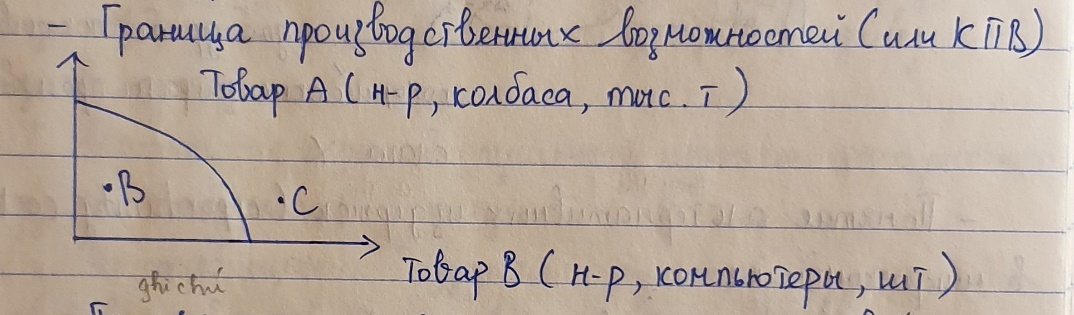 - Граница производственных возможностей (или КПВ)
Товар А (н-р, колбаса, тыс. т)
•В
•С
Товар В (н-р, компьютеры, шт)
ghi chú